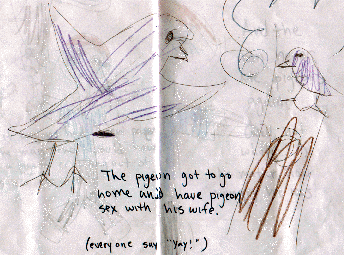 The pigeon got to go
home and have pigeon
sex with his wife.
(everyone say "Yay!")